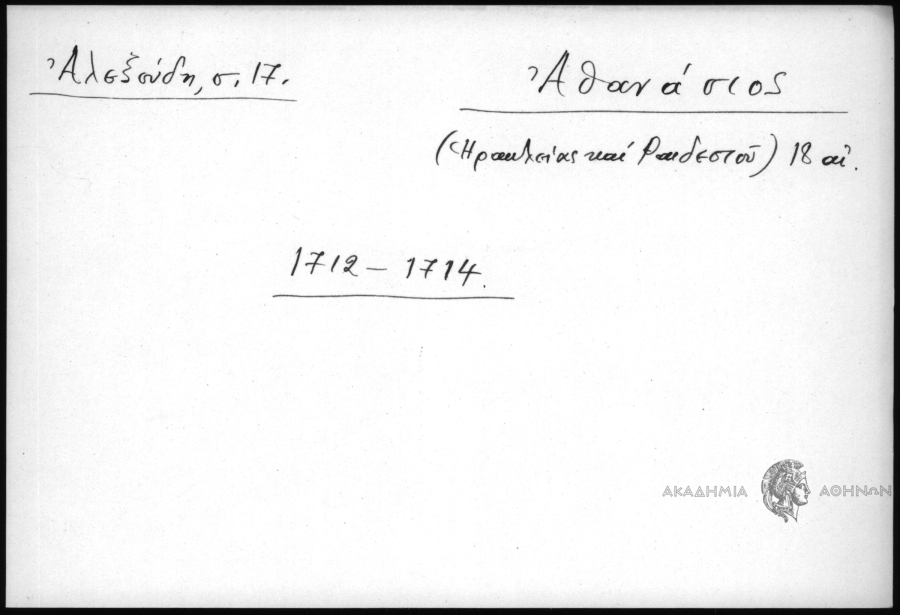 Ἀλεξούδη, σ. 17.
Ἀθανάσιος
(Ἡρακλείας καί Ραιδεστοῦ) 18 αἰ.
1712 – 1714.
ΑΚΑΔΗΜΙΑ ΑΘΗΝΩΝ